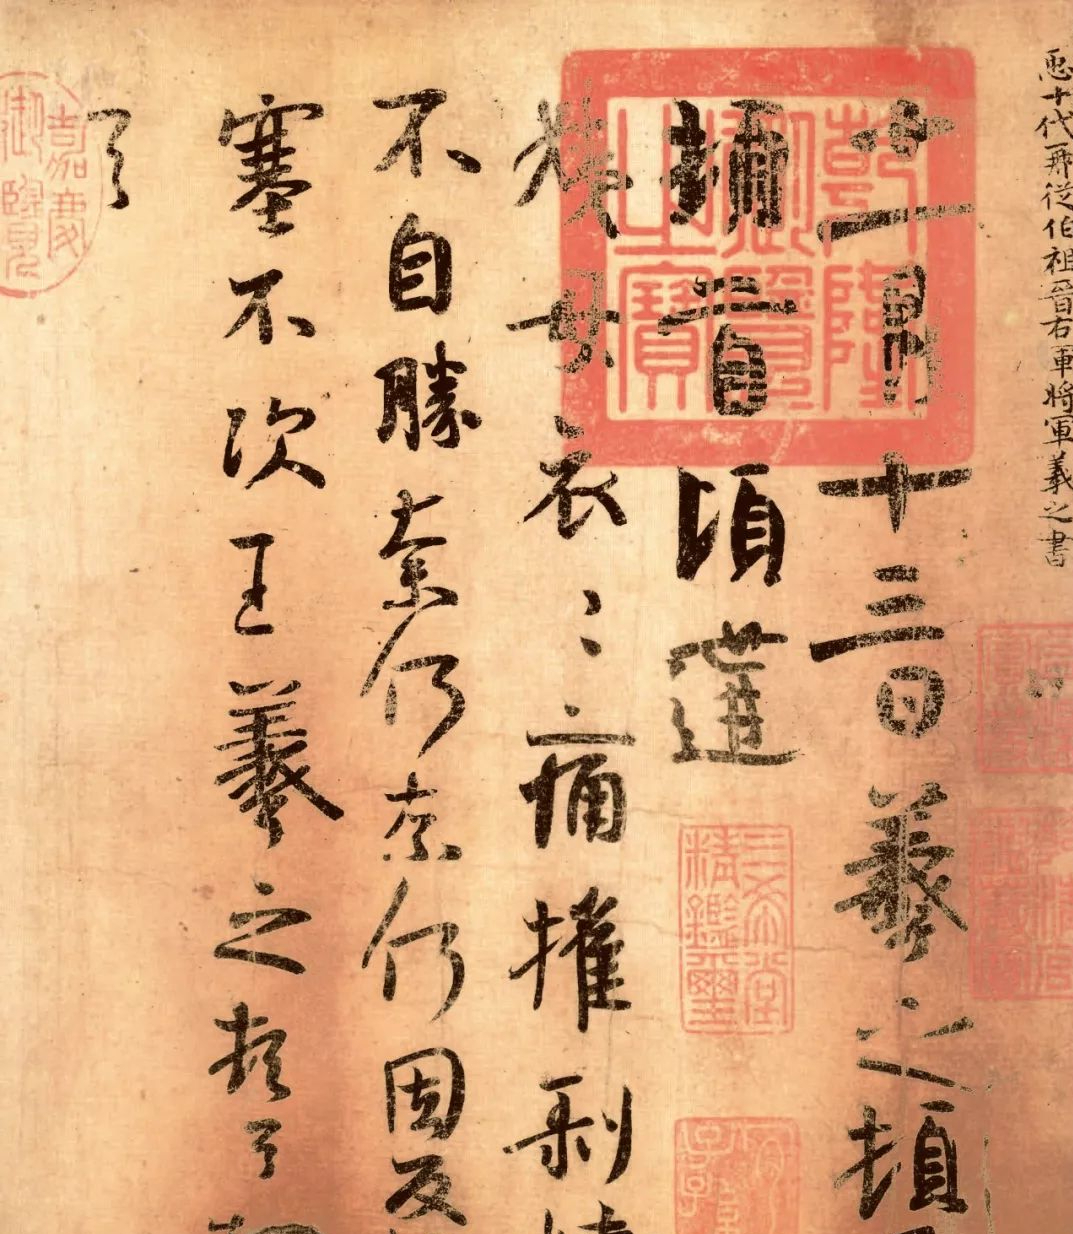 𢘑十代再從伯祖晉右軍將軍羲之書
十一月十三日羲之頓
頓首頃遘
姨母哀〻痛摧剝情
不自勝奈何奈何因反
塞不次王羲之頓首
首
乾隆御覽之寶
三希堂精鑑璽
嘉慶御覽